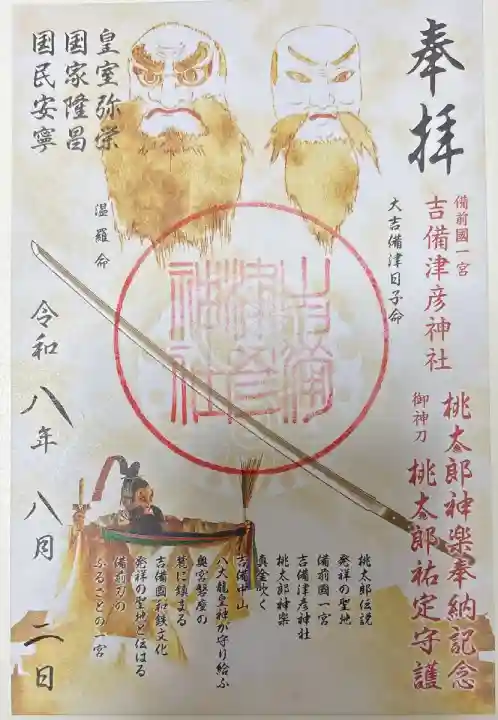 奉拝
備前國一宮
吉備津彦神社
桃太郎神楽奉納記念
御神刀
桃太郎祐定守護
大吉備津日子命
温羅命
皇室弥栄
国家隆昌
国民安寧
桃太郎伝説
発祥の聖地
備前國一宮
吉備津彦神社
桃太郎神楽
真金吹く
吉備中山
八大龍皇神が守り給ふ
奥宮磐座の
麓に鎮まる
吉備國和鉄文化
発祥の聖地と伝はる
備前刀の
ふるさとの一宮
令和八年八月二日